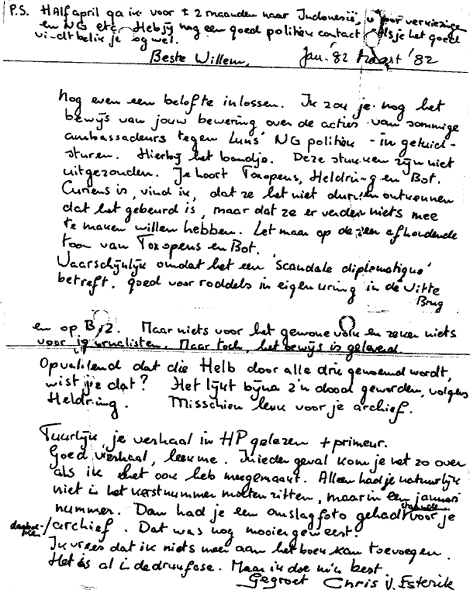 P.S. Half april ga ik voor ± 2 maanden naar Indonesië, voor verkiezingen
en NG etc. Heb jij nog een goed politiek contact. Als je het goed
vindt bel ik je nog wel.
Jan. '82 Maart '82
Beste Willem,
Nog even een belofte inlossen. Ik zou je nog het
bewijs van jouw bewering over de acties van sommige
ambassadeurs tegen Luns' NG politiek - in geluid -
sturen. Hierbij het bandje. Deze stukken zijn niet
uitgezonden. Je hoort Toxopens, Heldring en Bot.
Curieus is, vind ik, dat ze het niet durven ontkennen
dat het gebeurd is, maar dat ze er verder niets mee
te maken willen hebben. Let maar op de zeer afhoudende
toon van Toxopens en Bot.
Waarschijnlijk omdat het een 'scandale diplomatique'
betreft, goed voor roddels in eigen kring in de Witte
Brug
en op B.Z. Maar niets voor het gewone volk en zeker niets
voor journalisten. Maar toch, het bewijs is geleverd.
Opvallend dat die Helb door alle drie genoemd wordt,
wist jij dat? Het lijkt bijna z'n dood geworden, volgens
Heldring. Misschien leuk voor je archief.
Tuurlijk, je verhaal in HP gelezen + primeur.
Goed verhaal, leek me. In ieder geval kom je net zo over
als ik het ook heb meegemaakt. Alleen had je natuurlijk
niet in het kerstnummer moeten zitten, maar in een januari
nummer. Dan had je een omslagfoto gehad voor je
archief. Dat was nog mooier geweest.
Ik vrees dat ik niets meer aan het boek kan toevoegen.
Het is al in de drukfase. Maar ik doe m'n best
Gegroet Chris v. Esterik